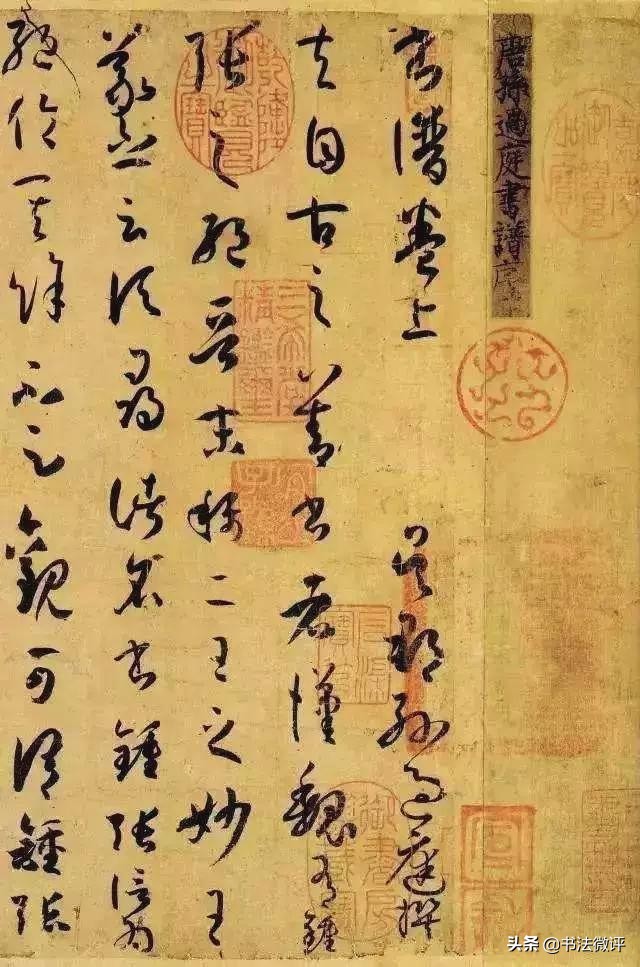 唐孫過庭書譜序
書譜卷上 吳郡孫過庭撰
夫自古之善書者漢魏有鍾
張之絕晉末稱二王之妙王
羲之云頃尋諸名書鍾張信為
絕倫其餘不足觀可謂鍾張
乾隆御覽之寶
三希堂精鑑璽
宜子孫
头条 @书法微评